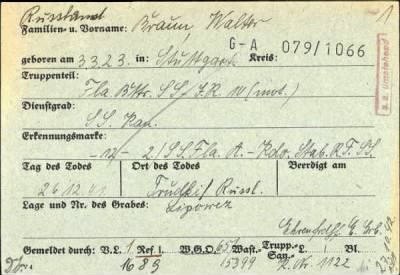 Russland
1
Familien- u. Vorname: Braun, Walter
G-A 079/1066
geboren am 3.3.23. in: Stuttgart Kreis:
Truppenteil:
Fla Bttr. SS/I.R. (mot.)
Dienstgrad:
SS Kan.
Erkennungsmarke:
-12- 2/SS. Fla. A. - Kdo. Stab. RF. SS
Tag des Todes Ort des Todes Beerdigt am
26.12.41 Russl.
Lage und Nr. des Grabes: Lipowez
Ehrenfriedhof
Gemeldet durch: V.L. 1 Ref I. W.G.O. 651 Wast.- Trupp.- San.- L. Bl.
1689 15399 Z. Nr. 1122